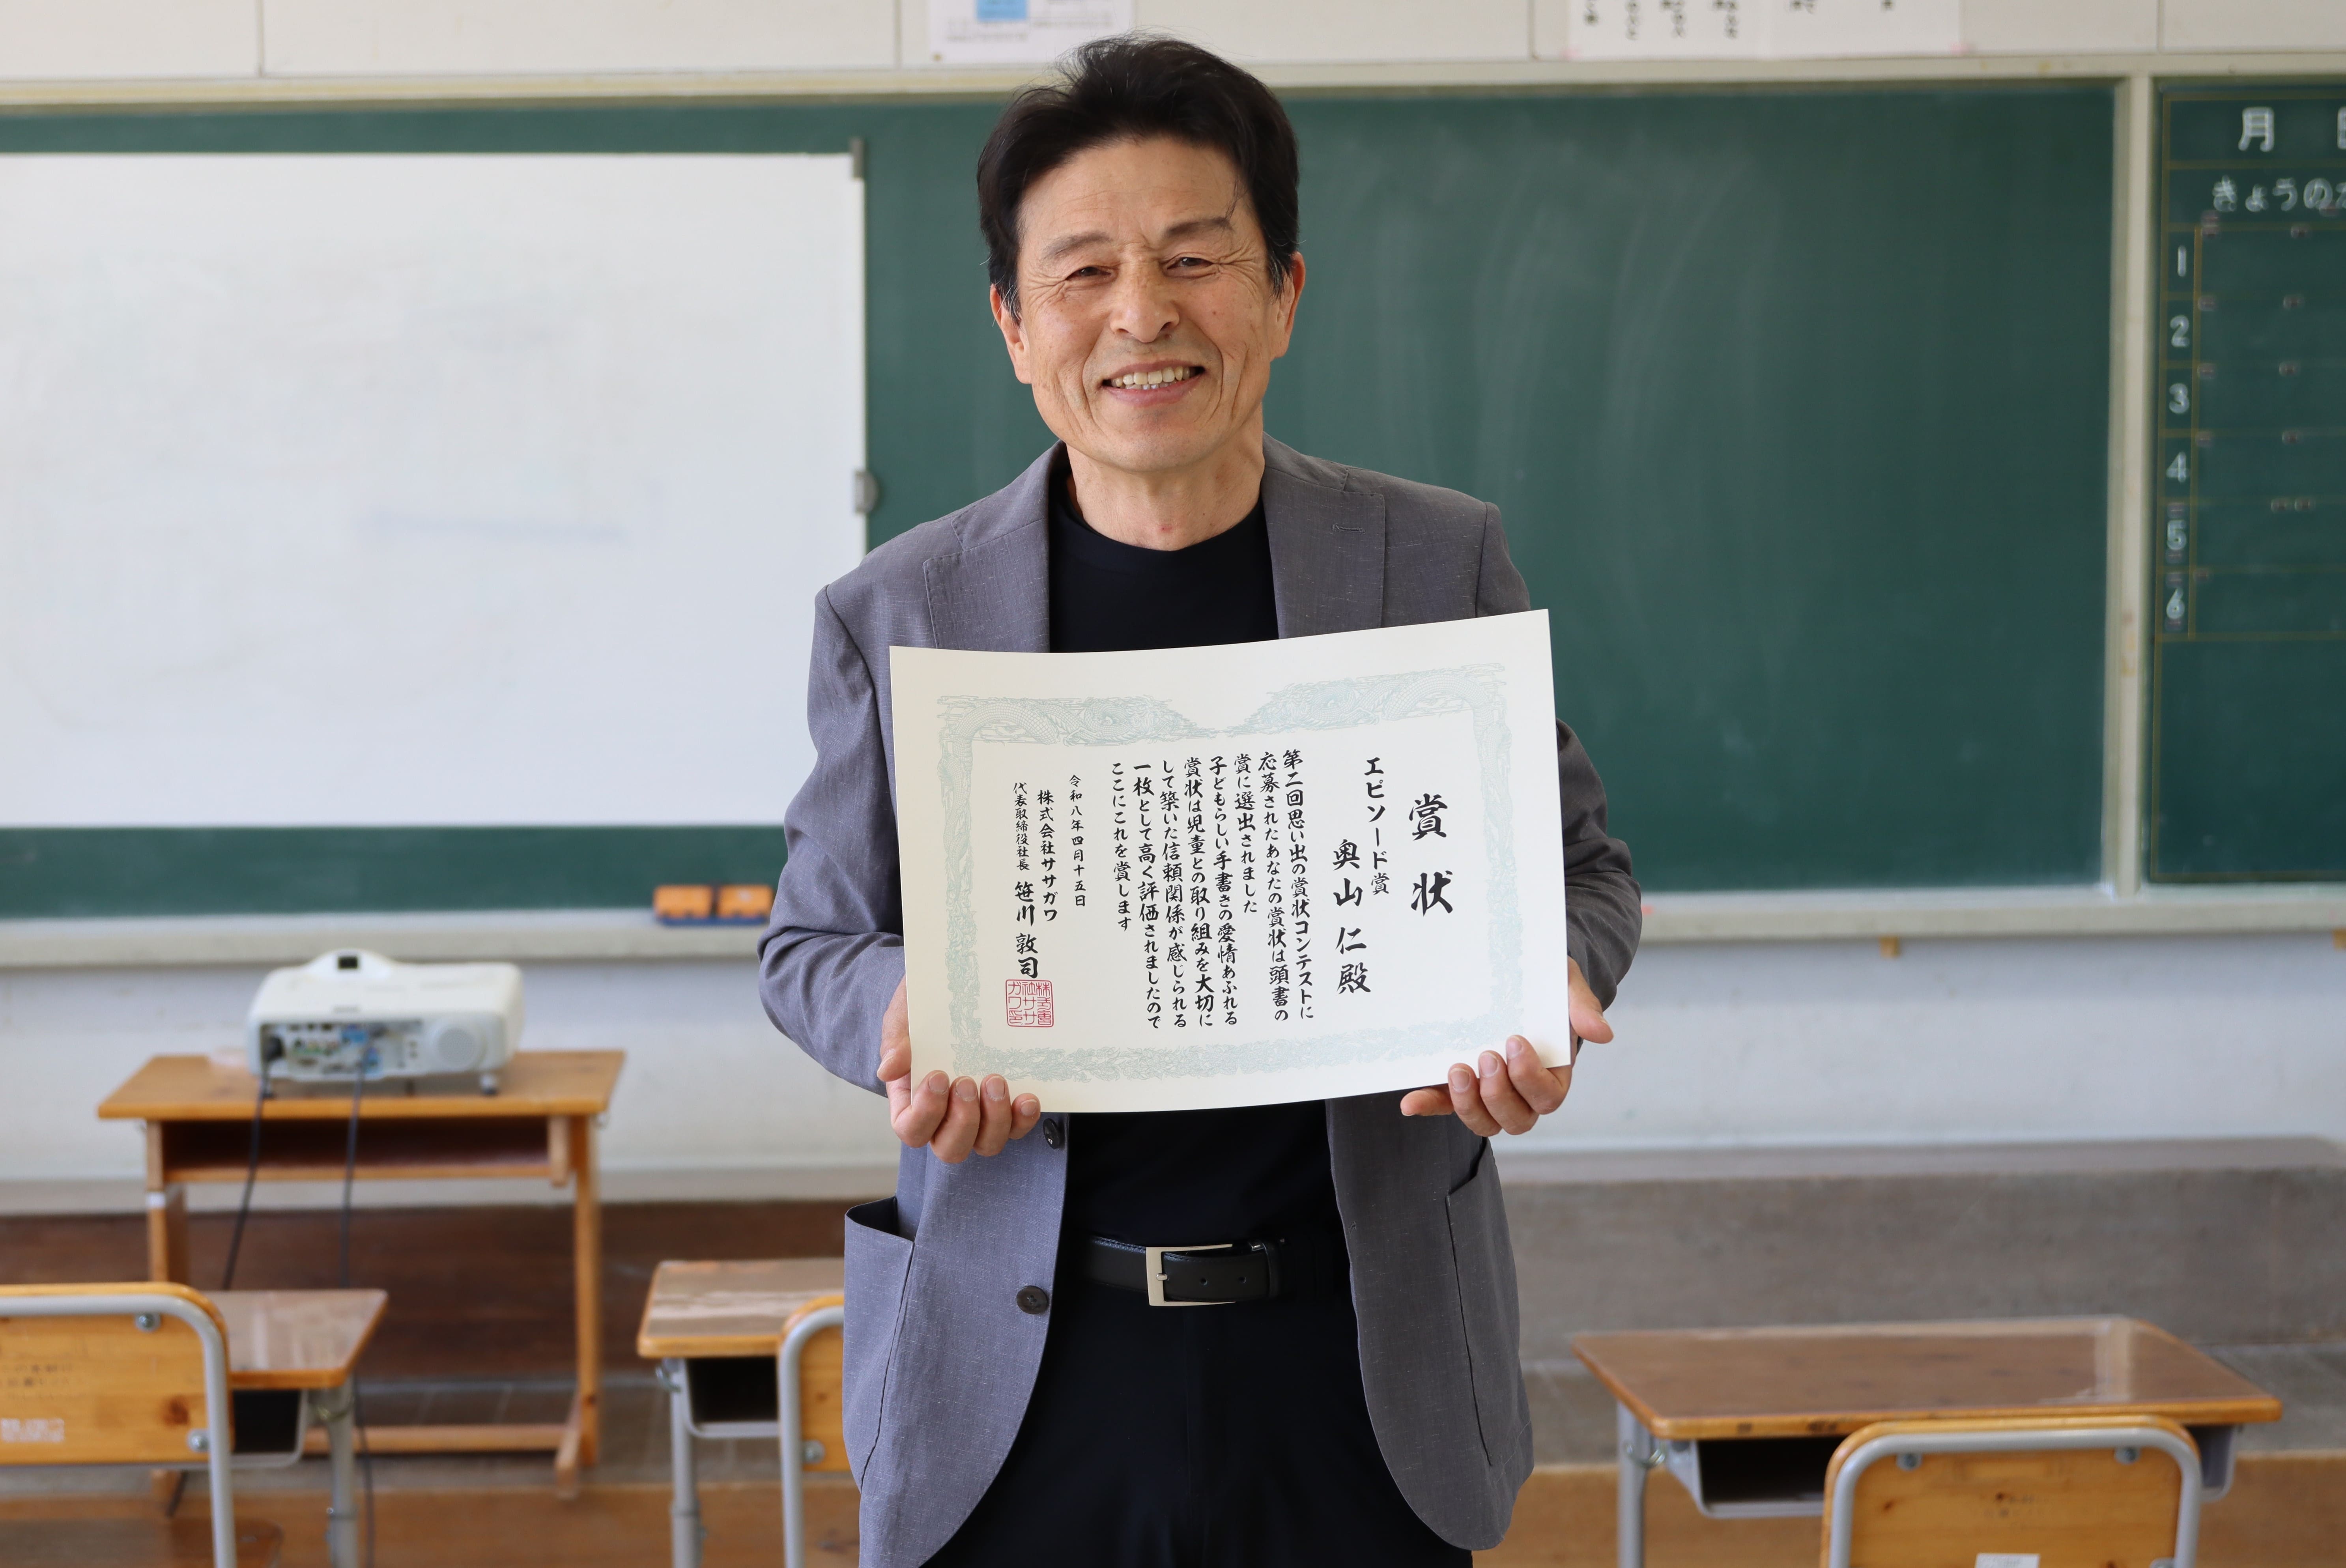 賞状
エピソード賞
奥山仁殿
第二回思い出の賞状コンテストに
応募されたあなたの賞状は頭書の
賞に選出されました
子どもらしい手書きの愛情あふれる
賞状は児童との取り組みを大切に
して築いた信頼関係が感じられる
一枚として高く評価されましたので
ここにこれを賞します
令和八年四月十五日
株式会社ササガワ
代表取締役社長 笹川敦司
月
きょうの
1
2
3
4
5
6